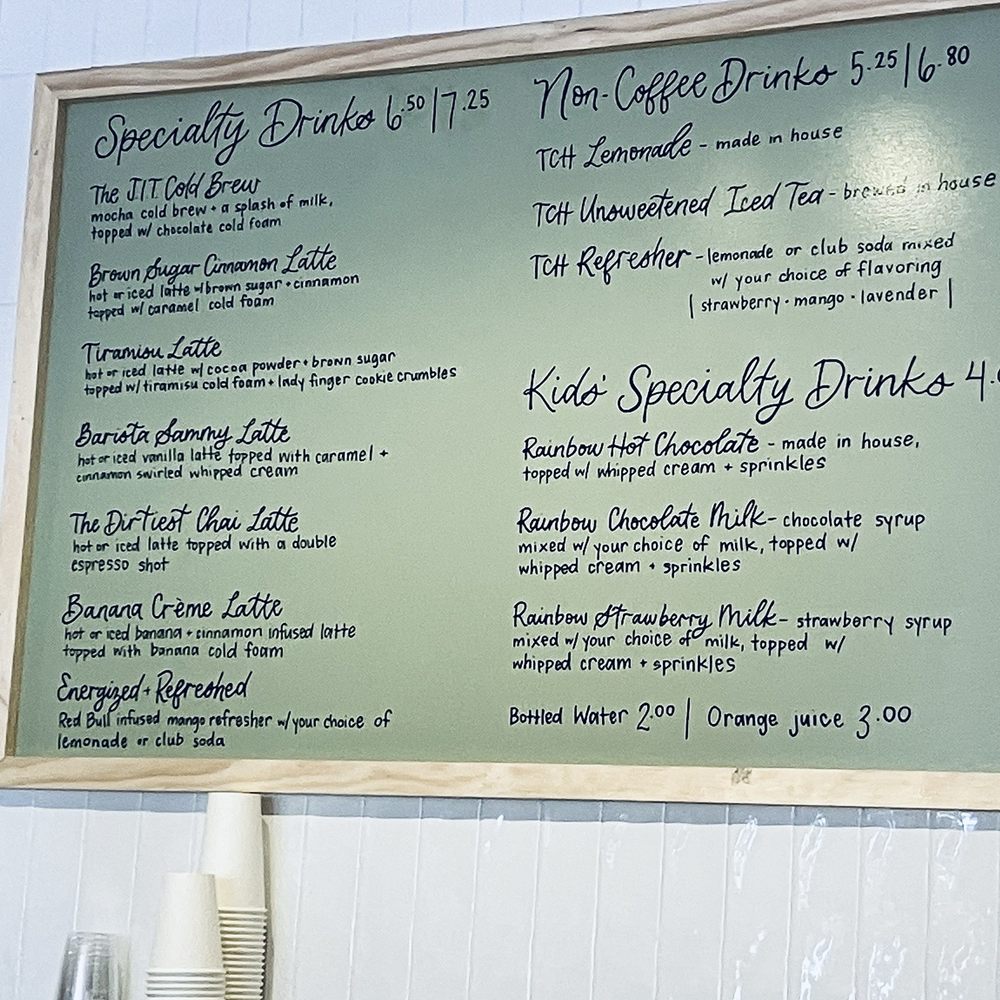 Specialty Drinks 6.50 | 7.25
The J.I.T. Cold Brew
mocha cold brew + a splash of milk,
topped w/ chocolate cold foam
Brown Sugar Cinnamon Latte
hot or iced latte w/ brown sugar + cinnamon
topped w/ caramel cold foam
Tiramisu Latte
hot or iced latte w/ cocoa powder + brown sugar
topped w/ tiramisu cold foam + lady finger cookie crumbles
Barista Sammy Latte
hot or iced vanilla latte topped with caramel +
cinnamon swirled whipped cream
The Dirtiest Chai Latte
hot or iced latte topped with a double
espresso shot
Banana Crème Latte
hot or iced banana + cinnamon infused latte
topped with banana cold foam
Energized + Refreshed
Red Bull infused mango refresher w/ your choice of
lemonade or club soda
Non-Coffee Drinks 5.25 | 6.80
TCH Lemonade - made in house
TCH Unsweetened Iced Tea - brewed in house
TCH Refresher - lemonade or club soda mixed
w/ your choice of flavoring
| strawberry · mango · lavender |
Kids' Specialty Drinks 4.
Rainbow Hot Chocolate - made in house,
topped w/ whipped cream + sprinkles
Rainbow Chocolate Milk - chocolate syrup
mixed w/ your choice of milk, topped w/
whipped cream + sprinkles
Rainbow Strawberry Milk - strawberry syrup
mixed w/ your choice of milk, topped w/
whipped cream + sprinkles
Bottled Water 2.00 | Orange juice 3.00